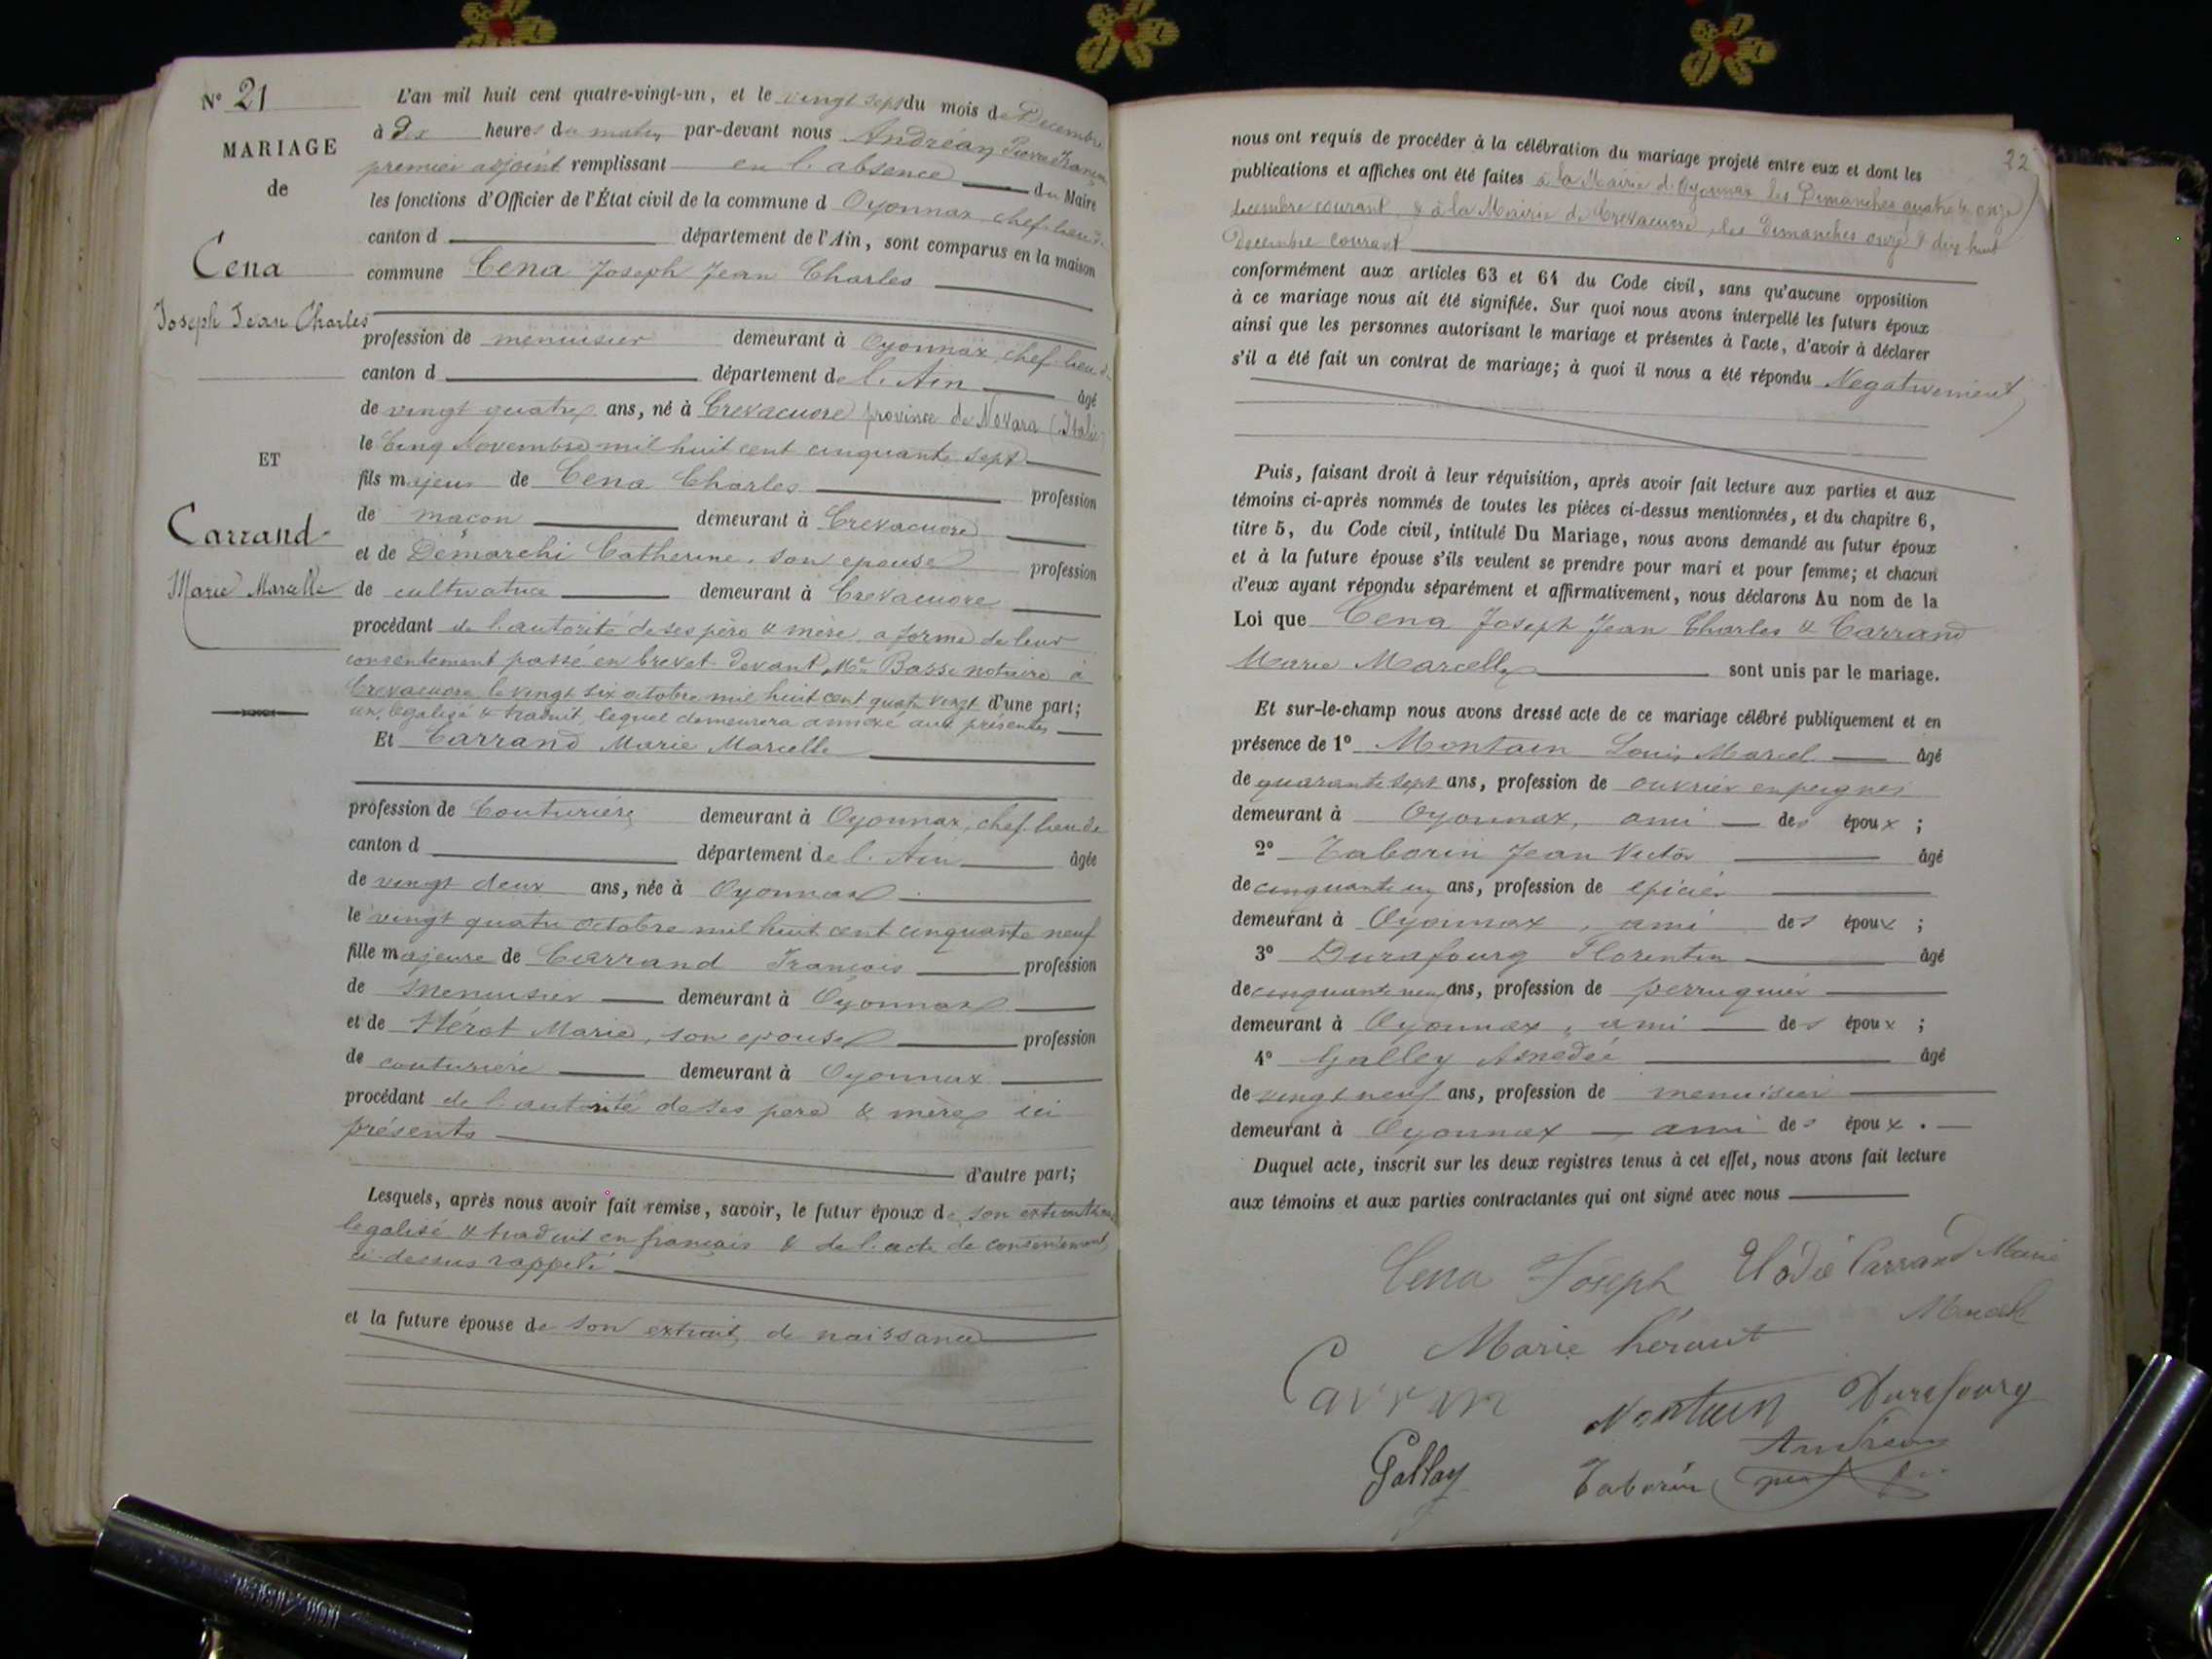 N° 21
MARIAGE
de
Cena
Joseph Jean Charles
ET
Carrand
Marie Marcelle
L'an mil huit cent quatre-vingt-un, et le vingt sept du mois de Décembre
à Dix heures du matin par-devant nous Andréan Pierre François
premier adjoint remplissant en l'absence du Maire
les fonctions d'Officier de l'État civil de la commune d Oyonnax chef-lieu de
canton d département de l'Ain, sont comparus en la maison
commune Cena Joseph Jean Charles
profession de menuisier demeurant à Oyonnax, chef-lieu de
canton d département de l'Ain âgé
de vingt quatre ans, né à Crevacuore province de Novara (Italie)
le Cinq Novembre mil huit cent cinquante sept
fils majeur de Cena Charles profession
de maçon demeurant à Crevacuore
et de Démarchi Catherine, son épouse profession
de cultivatrice demeurant à Crevacuore
procédant de l'autorité de ses père & mère, a forme de leur
consentement passé en brevet devant Me Basse notaire à
Crevacuore le vingt six octobre mil huit cent quatre vingt d'une part;
un, légalisé & traduit, lequel demeurera annexé aux présentes
Et Carrand Marie Marcelle
profession de Couturière demeurant à Oyonnax, chef-lieu de
canton d département de l'Ain âgée
de vingt deux ans, née à Oyonnax
le vingt quatre octobre mil huit cent cinquante neuf
fille majeure de Carrand François profession
de Menuisier demeurant à Oyonnax
et de Hérot Marie, son épouse profession
de couturière demeurant à Oyonnax
procédant de l'autorité de ses père & mère ici
présents
d'autre part;
Lesquels, après nous avoir fait remise, savoir, le futur époux de son
légalisé & traduit en français & de l'acte de consentement
ci-dessus rappelé
et la future épouse de son extrait de naissance
22
nous ont requis de procéder à la célébration du mariage projeté entre eux et dont les
publications et affiches ont été faites à la Mairie d'Oyonnax les Dimanches quatre & onze
décembre courant & à la Mairie de Crevacuore, les Dimanches onze & dix huit
Décembre courant
conformément aux articles 63 et 64 du Code civil, sans qu'aucune opposition
à ce mariage nous ait été signifiée. Sur quoi nous avons interpellé les futurs époux
ainsi que les personnes autorisant le mariage et présentes à l'acte, d'avoir à déclarer
s'il a été fait un contrat de mariage; à quoi il nous a été répondu Négativement
Puis, faisant droit à leur réquisition, après avoir fait lecture aux parties et aux
témoins ci-après nommés de toutes les pièces ci-dessus mentionnées, et du chapitre 6,
titre 5, du Code civil, intitulé Du Mariage, nous avons demandé au futur époux
et à la future épouse s'ils veulent se prendre pour mari et pour femme; et chacun
d'eux ayant répondu séparément et affirmativement, nous déclarons Au nom de la
Loi que Cena Joseph Jean Charles & Carrand
Marie Marcelle sont unis par le mariage.
Et sur-le-champ nous avons dressé acte de ce mariage célébré publiquement et en
présence de 1° Montain Louis Marcel âgé
de quarante sept ans, profession de ouvrier en peignes
demeurant à Oyonnax, ami des époux ;
2° Taborin Jean Victor âgé
de cinquante un ans, profession de épicier
demeurant à Oyonnax, ami des époux ;
3° Durafourg Florentin âgé
de cinquante neuf ans, profession de perruquier
demeurant à Oyonnax, ami des époux ;
4° Galley Amédée âgé
de vingt neuf ans, profession de menuisier
demeurant à Oyonnax ami des époux .
Duquel acte, inscrit sur les deux registres tenus à cet effet, nous avons fait lecture
aux témoins et aux parties contractantes qui ont signé avec nous
Cena Joseph Elodie Carrand Marie
Marie héraut
Montain Durafourg
Gallay Taborin Andréan